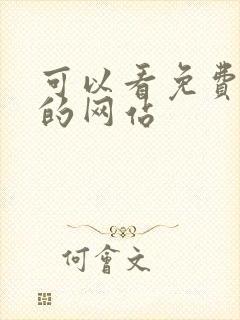 可以看免費
的网站
何會文